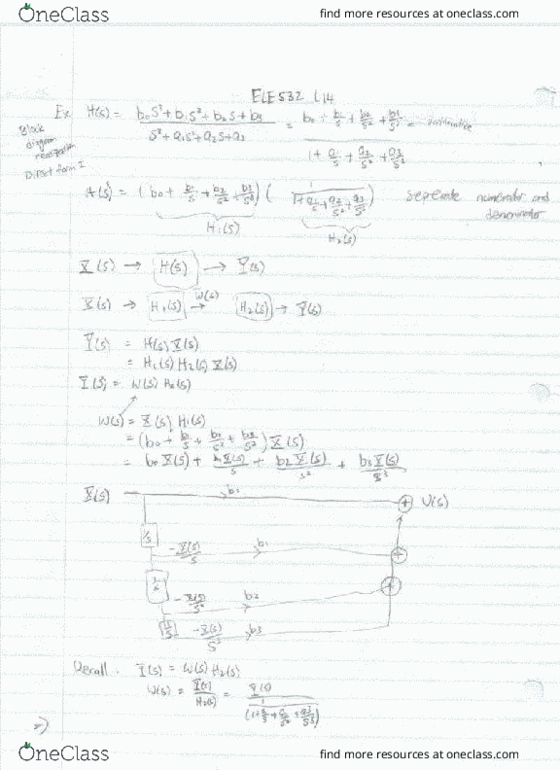 OneClass
find more resources at oneclass.com
ELE532 L14
Ex. H(s) = b₀s³ + b₁s² + b₂s + b₃ / s³ + a₁s² + a₂s + a₃ = b₀ + b₁/s + b₂/s² + b₃/s³ / 1 + a₁/s + a₂/s² + a₃/s³
Block
diagram
Direct form I
H(s) = (b₀ + b₁/s + b₂/s² + b₃/s³) (1 / 1 + a₁/s + a₂/s² + a₃/s³) seperate numerator and
denominator
H₁(s) H₂(s)
X(s) → H(s) → Y(s)
X(s) → H₁(s) → W(s) H₂(s) → Y(s)
Y(s) = H(s) X(s)
= H₁(s) H₂(s) X(s)
Y(s) = W(s) H₂(s)
W(s) = X(s) H₁(s)
= (b₀ + b₁/s + b₂/s² + b₃/s²) X(s)
= b₀ X(s) + b₁X(s)/s + b₂X(s)/s² + b₃X(s)/s³
X(s) b₀ W(s)
1/s
-X(s)/s b₁
1/s
-X(s)/s² b₂
1/s -X(s)/s³ b₃
Recall. Y(s) = W(s) H₂(s)
W(s) = Y(s)/H₂(s) = Y(s) / 1/(1 + a₁/s + a₂/s² + a₃/s³)
⇒)
OneClass
find more resources at oneclass.com